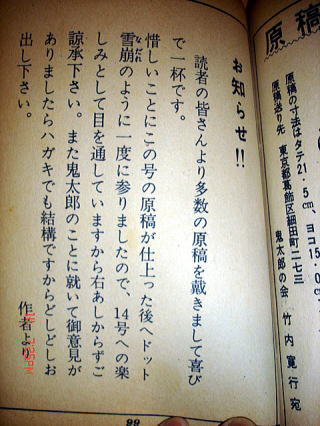 原稿
原稿の寸法はタテ21.5㎝、ヨコ15.0㎝
原稿送り先　東京都葛飾区細田町二七三
鬼太郎の会　竹内寛行宛
お知らせ!!
読者の皆さんより多数の原稿を戴きまして喜び
で一杯です。
惜しいことにこの号の原稿が仕上った後へドット
雪崩のように一度に参りましたので、14号への楽
なだれ
しみとして目を通していますから右あしからずご
諒承下さい。また鬼太郎のことに就いて御意見が
ありましたらハガキでも結構ですからどしどしお
出し下さい。
作者より
99